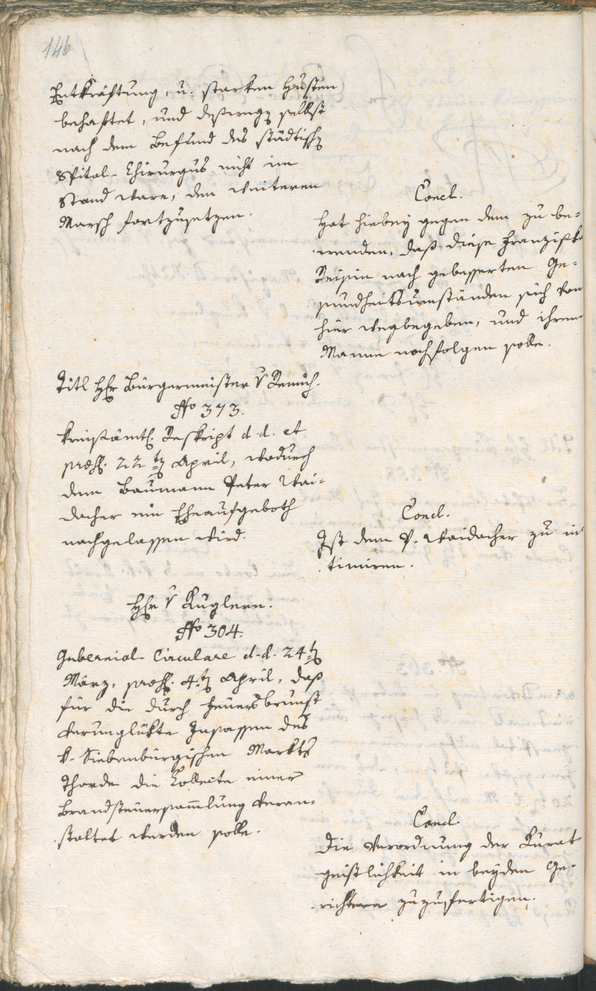 146
Entkräftung, u. starken Husten
behaftet, und deßwegen selbst
nach dem Befund des städtisch
Spital-Chirurgus nicht im
Stand wäre, den weiteren
Marsch fortzusetzen.
Concl.
Hat hiebey gegen dem zu be-
wenden, daß diese Franziska
Reisin nach gebesserten Ge-
sundheitsumständen sich von
hier wegbegeben, und ihrem
Manne nachfolgen solle.
Titl Hr Bürgermeister v
No 373.
Kreisämtl. Reskript d. d. et
praes. 22ten April, wodurch
dem Baumann Peter Wai-
dacher ein Eheaufgeboth
nachgelassen wird.
Concl.
Ist dem P. Waidacher zu in
timiren.
Hr v Kuglern.
No 304.
Gubernial-Circulare d. d. 24ten
März, praes. 4ten April, daß
für die durch Feuersbrunst
verunglükte Insassen des
k. Siebenbürgischen Markts
Thorda die Collecte einer
Brandsteuersammlung veran-
staltet werden solle.
Concl.
Die Verordnung der Kurat
geistlichkeit in beyden Ge-
richtern zuzufertigen.